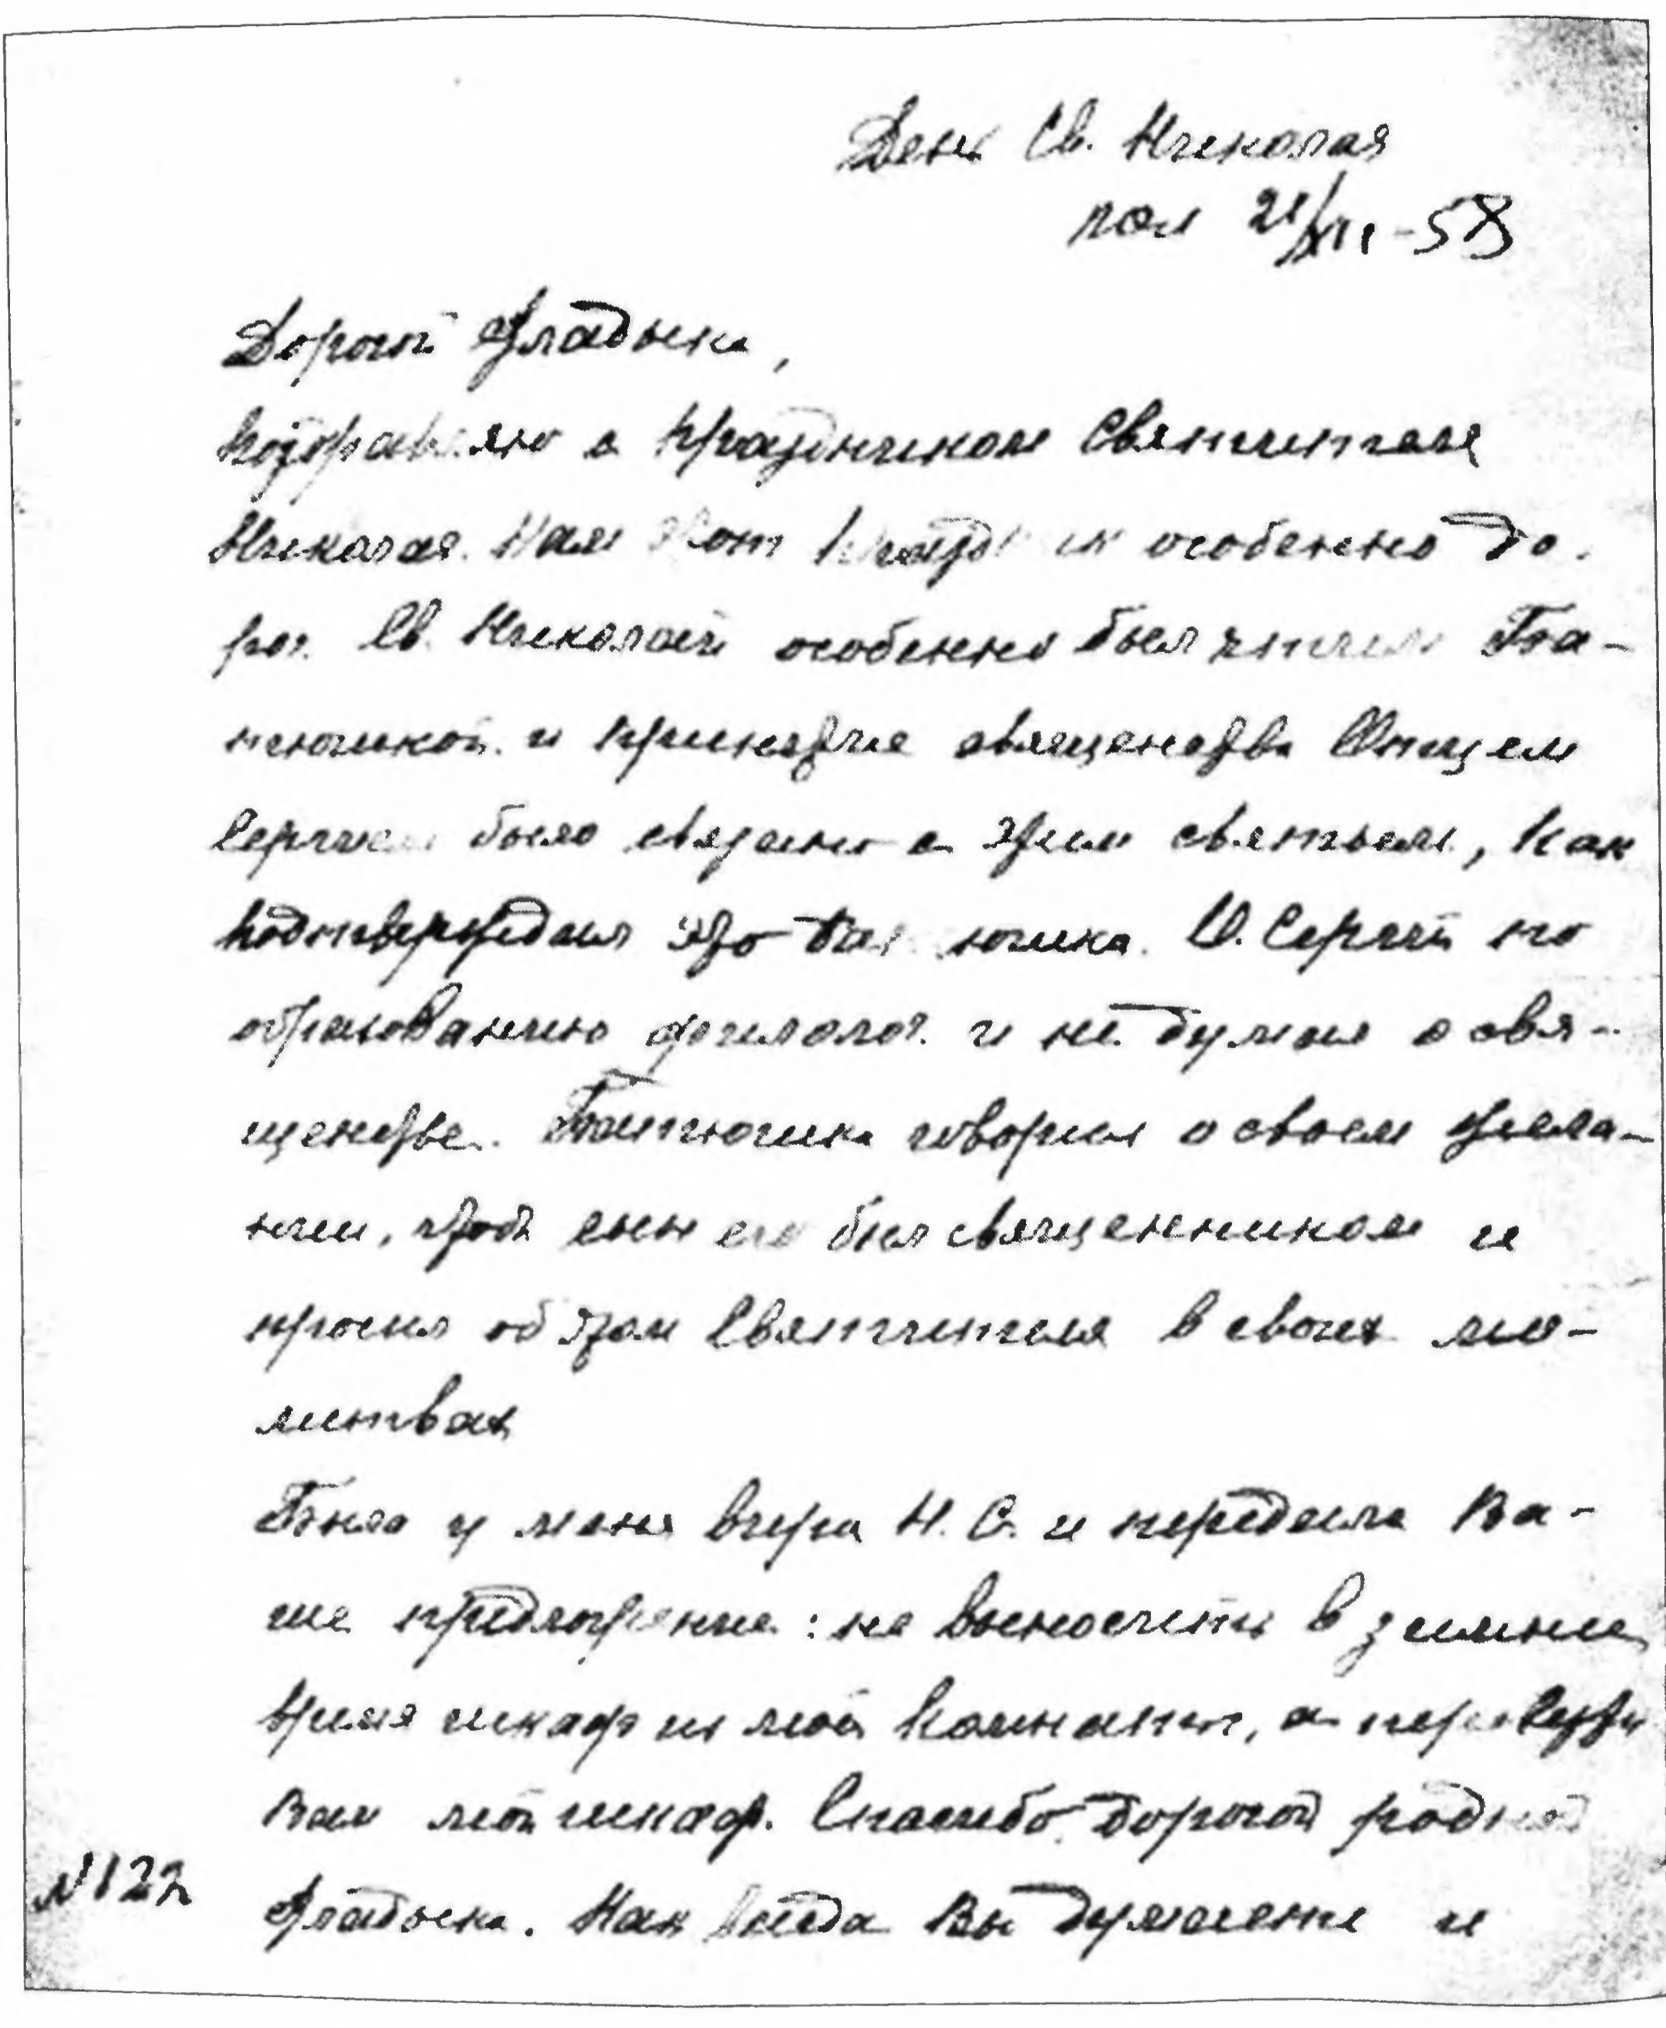 День Св. Николая
21/XII-58
Дорогой Владыка,
поздравляю с праздником Святителя
Николая. Нам этот праздник особенно до-
рог. Св. Николай особенно был чтим Ба-
тюшкой и принятие священства Отцем
Сергием было связано с этим святым, как
подтверждал это Батюшка. О. Сергий по
образованию филолог и не думал о свя-
щенстве. Батюшка говорил о своем жела-
нии, чтоб сын его был священником и
просил об этом Святителя в своих мо-
литвах
Была у меня вчера Н. С. и передала Ва-
ше предложение: не выносить в зимнее
время шкаф из моей комнаты, а перевезти
Вам мой шкаф. Спасибо, дорогой родной
Владыка. Как всегда Вы думаете и
№122